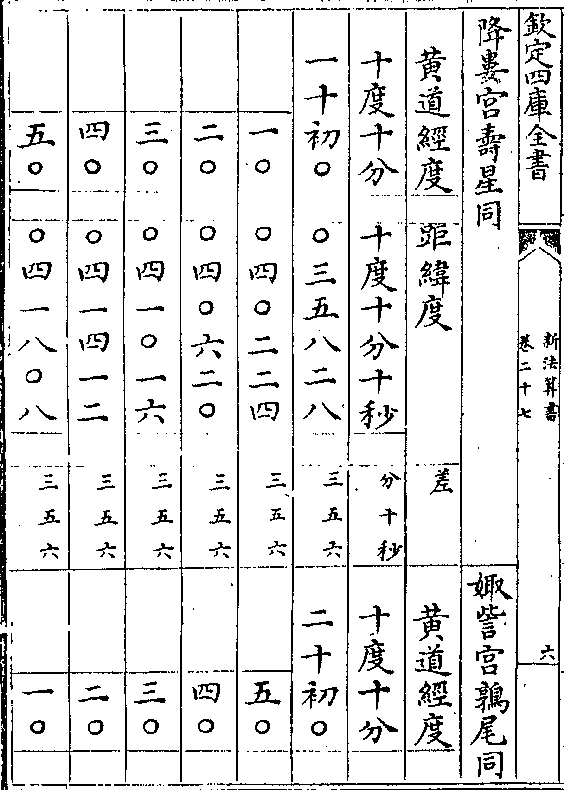 欽定四庫全書
新法算書
卷二十七
六
降婁宮壽星同
娵訾宮鶉尾同
黃道經度
距緯度
差
黃道經度
十度十分
十度十分十秒
分十秒
十度十分
一十初〇
〇三五八二八
三五六
二十初〇
一〇
〇四〇二二四
三五六
五〇
二〇
〇四〇六二〇
三五六
四〇
三〇
〇四一〇一六
三五六
三〇
四〇
〇四一四一二
三五六
二〇
五〇
〇四一八〇八
三五六
一〇